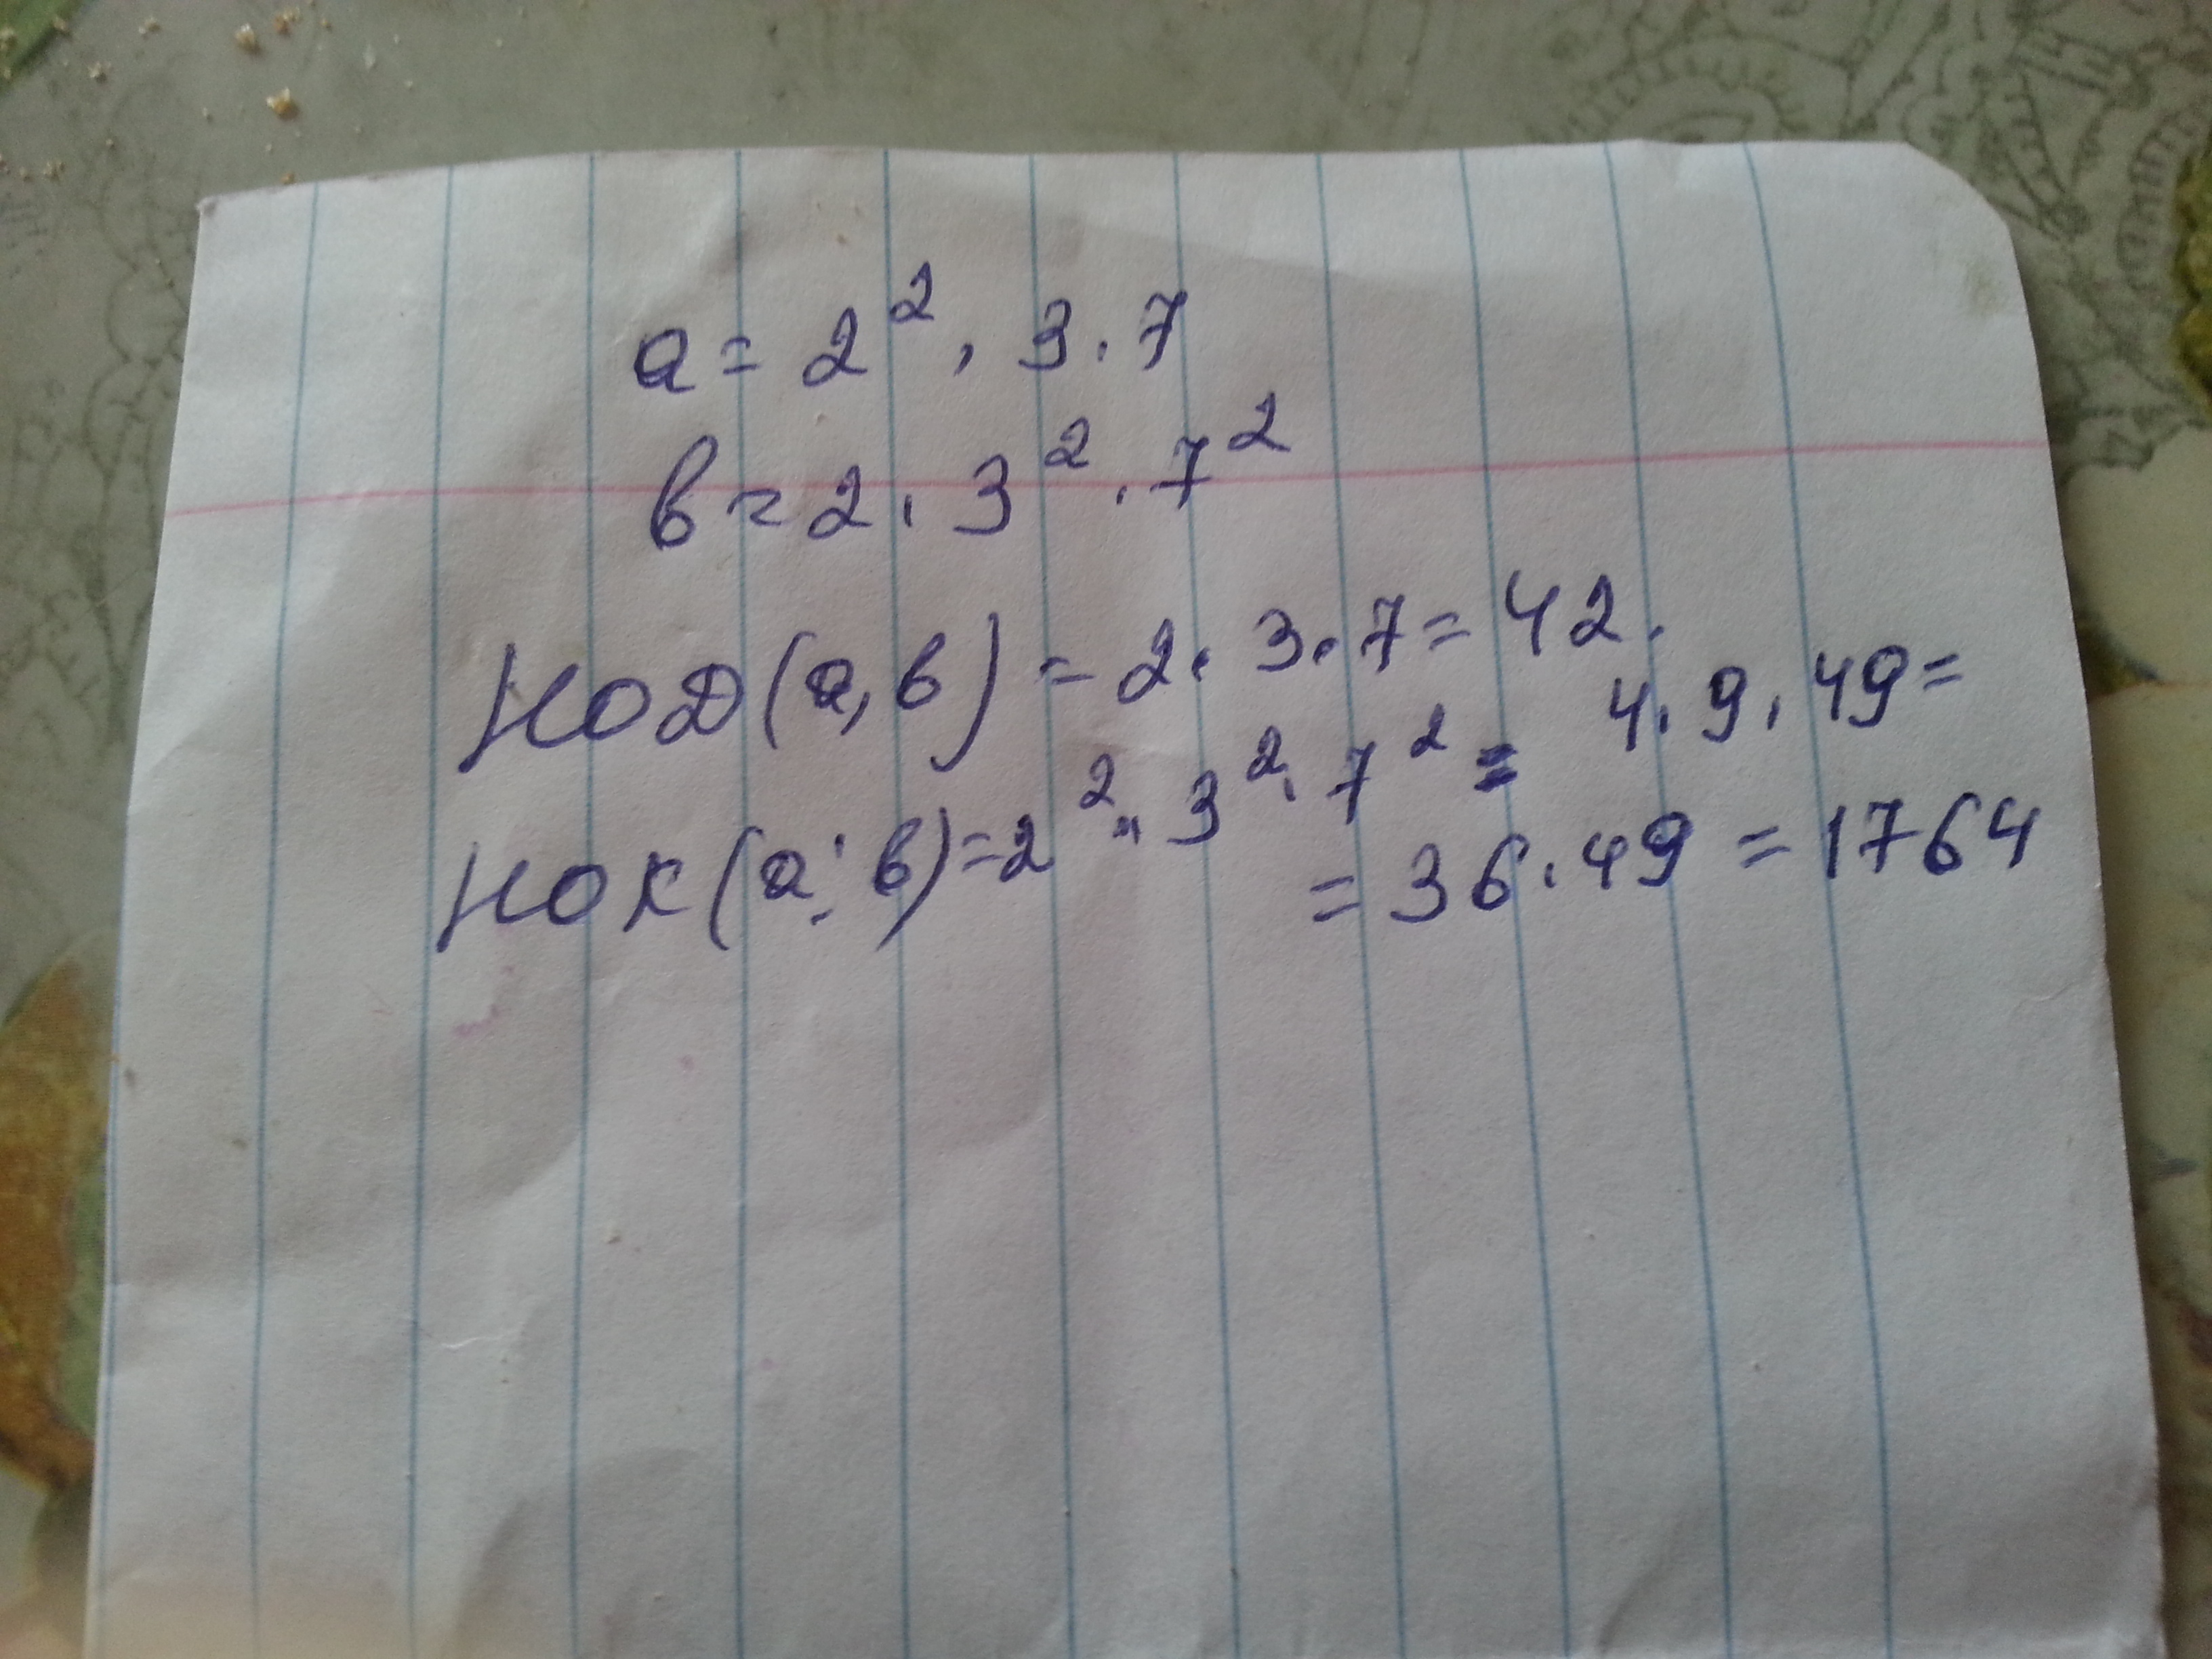 a = 2² · 3 · 7
в = 2 · 3² · 7²
НОД(а, в) = 2 · 3 · 7 = 42.
НОК(а; в) = 2² · 3² · 7² = 4 · 9 · 49 =
= 36 · 49 = 1764